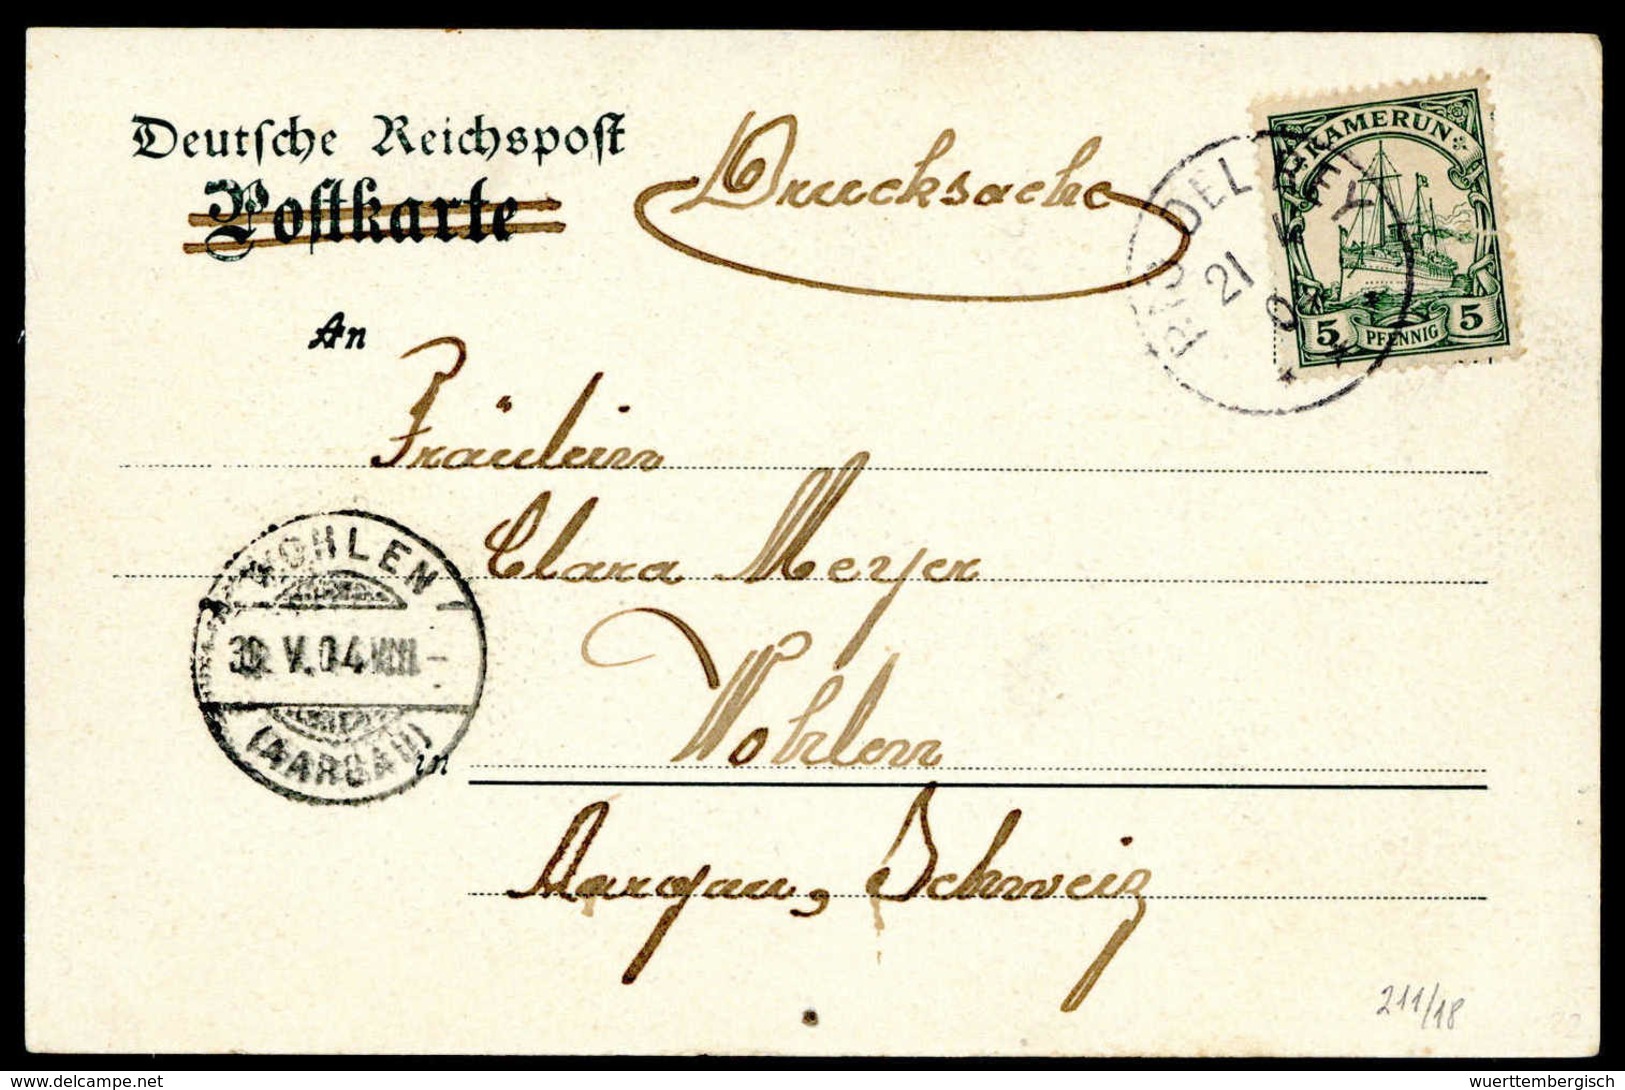 Deutsche Reichspost
Postkarte
Drucksache
KAMERUN
5 PFENNIG 5
RIO DEL REY
21
An
Fräulein
Clara Meyer
Wohlen
in
Aargau, Schweiz
WOHLEN
30. V. 04 VIII-
(AARGAU)
211/18
22
www.delcampe.net
wuerttembergisch